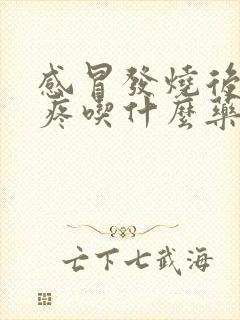 感冒發燒後
疼喫什麼藥
亡下七武海